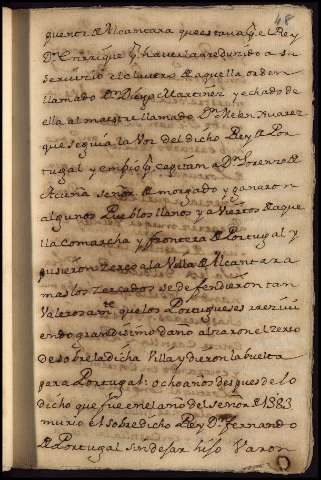 48
puente de Alcantara que estava por el Rey
Dn. Enrrique que havia reduzido a su
servicio el clavero de aquella orden
llamado Dn. Diego Martinez y echado de
ella al maestre llamado Dn. Melen Xuarez
que seguia la Voz del dicho Rey de Por
tugal y embio por capitan a Dn. Lorenzo de
Acuña señor de morgado y ganaron
algunos Pueblos llanos y aviertos de aque
lla Comarcha y frontera de Portugal y
pusieron zerco a la Villa de Alcantara
mas los zercados se defendieron tan
Valerosamte. que los Portugueses
endo grandissimo daño alzaron el zerco
de sobre la dicha Villa y dieron la buelta
para Portugal: ocho anos despues de lo
dicho que fue en el año del señor de 1383
murio el sobredicho Rey Dn. fernando
de Portugal sin dejar hijo Varon